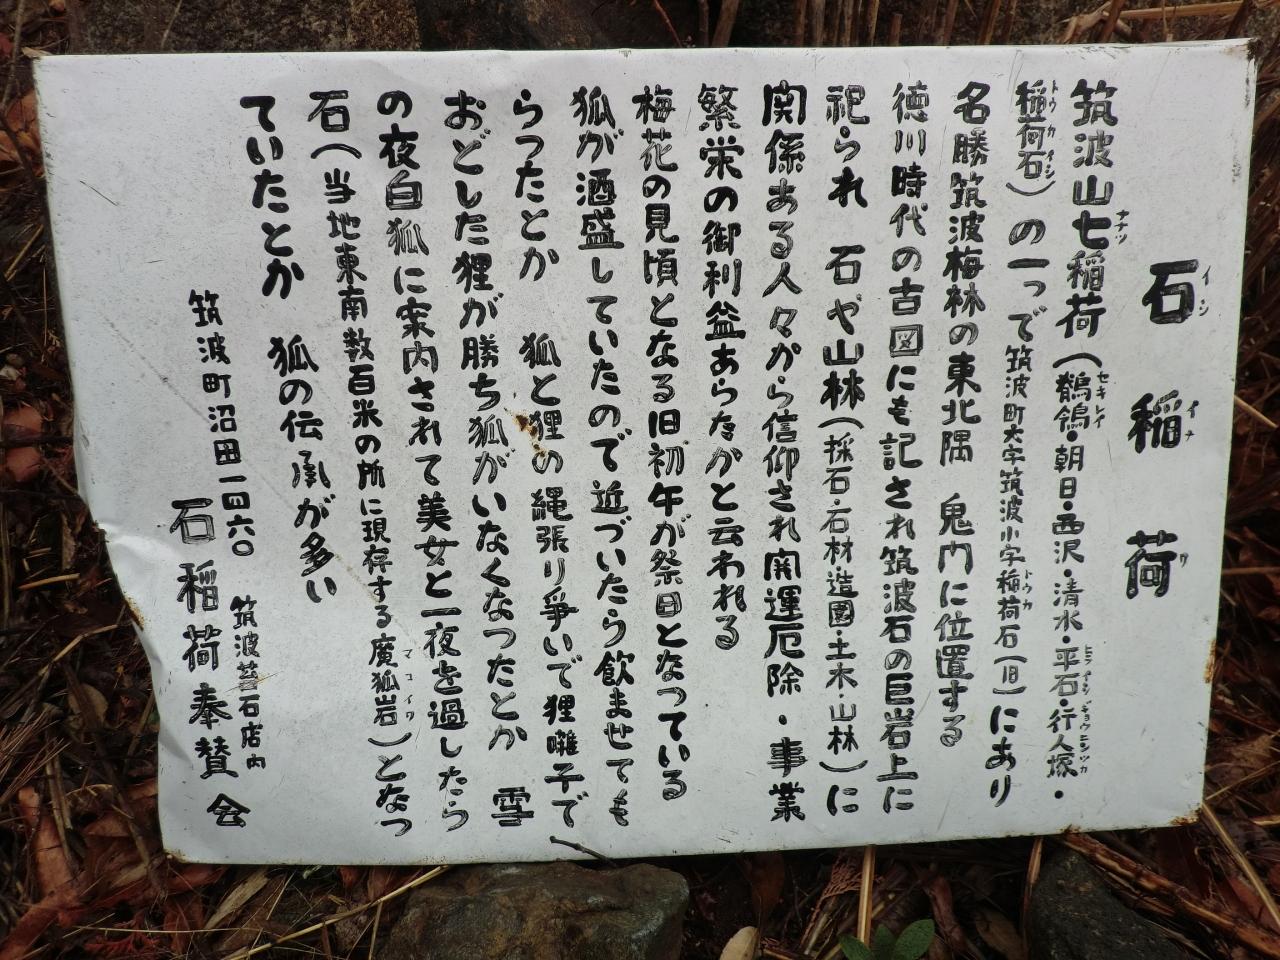 石稲荷
筑波山七稲荷(鶺鴒・朝日・西沢・清水・平石・行人塚・
稲荷石)の一つで筑波町大字筑波小字稲荷石(旧)にあり
名勝筑波梅林の東北隅 鬼門に位置する
徳川時代の古図にも記され筑波石の巨岩上に
祀られ 石や山林(採石・石材造園・土木・山林)に
関係ある人々から信仰され開運厄除・事業
繁栄の御利益あらたかと云われる
梅花の見頃となる旧初午が祭日となつている
狐が酒盛していたので近づいたら飲ませても
らつたとか 狐と狸の縄張り争いで狸囃子で
おどした狸が勝ち狐がいなくなつたとか 雪
の夜白狐に案内されて美女と一夜を過したら
石(当地東南数百米の所に現存する魔狐岩)となつ
ていたとか 狐の伝承が多い
筑波町沼田一四六〇 筑波苔石店内
石稲荷奉賛会